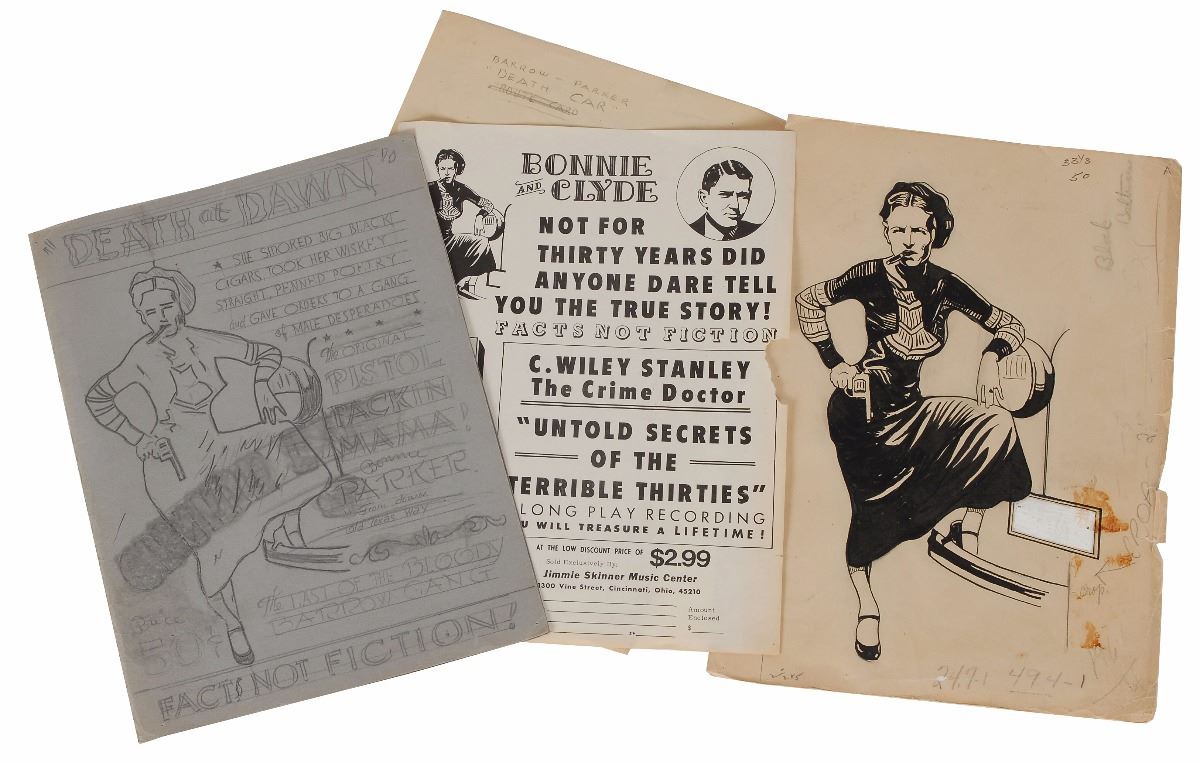 BARROW - PARKER
"DEATH CAR"
"DEATH at DAWN"
★ SHE SMOKED BIG BLACK
CIGARS, TOOK HER WISKEY
STRAIGHT, PENNED POETRY
and GAVE ORDERS TO A GANG
of MALE DESPERADOES
The ORIGINAL
PISTOL
PACKIN
MAMA!
Bonnie
PARKER
from down
old Texas way
The LAST OF THE BLOODY
BARROW GANG
Price
50¢
FACTS NOT FICTION!
BONNIE
AND CLYDE
NOT FOR
THIRTY YEARS DID
ANYONE DARE TELL
YOU THE TRUE STORY!
FACTS NOT FICTION
C. WILEY STANLEY
The Crime Doctor
"UNTOLD SECRETS
OF THE
TERRIBLE THIRTIES"
LONG PLAY RECORDING
U WILL TREASURE A LIFETIME!
AT THE LOW DISCOUNT PRICE OF $2.99
Sold Exclusively By:
Jimmie Skinner Music Center
1300 Vine Street, Cincinnati, Ohio, 45210
Amount
Enclosed
$
32 1/3
50
A
Black
249-1 494-1